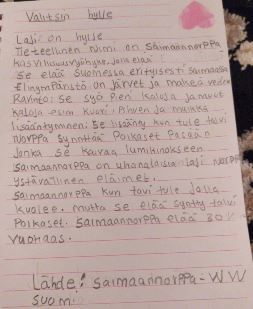 Valitsin hylje
Laji on hylje
Tieteellinen nimi on saimaannorppa
Kasvillisuusvyöhyke, jolla elää
se elää suomessa erityisesti saimaassa
Elinympäristö on järvet ja makea vede
Ravinto: se syö pieni kaloja ja muut
kaloja esim kuori, ahven ja muikku
lisääntyminen: se lisäänty kun tule tavi
norppa synnttää Poikaset Pesään
Jonka se kaivaa lumikinokseen
saimaannorppa on uhanalaisia laji norppa
ystävällinen eläimet.
saimaannorppa kun tavi tule jolla
kuolee. mutta se elää synty talvi
Poikaset. saimaannorppa elää 30
vuotias.
Lähde: saimaannorppa - WW
suomi